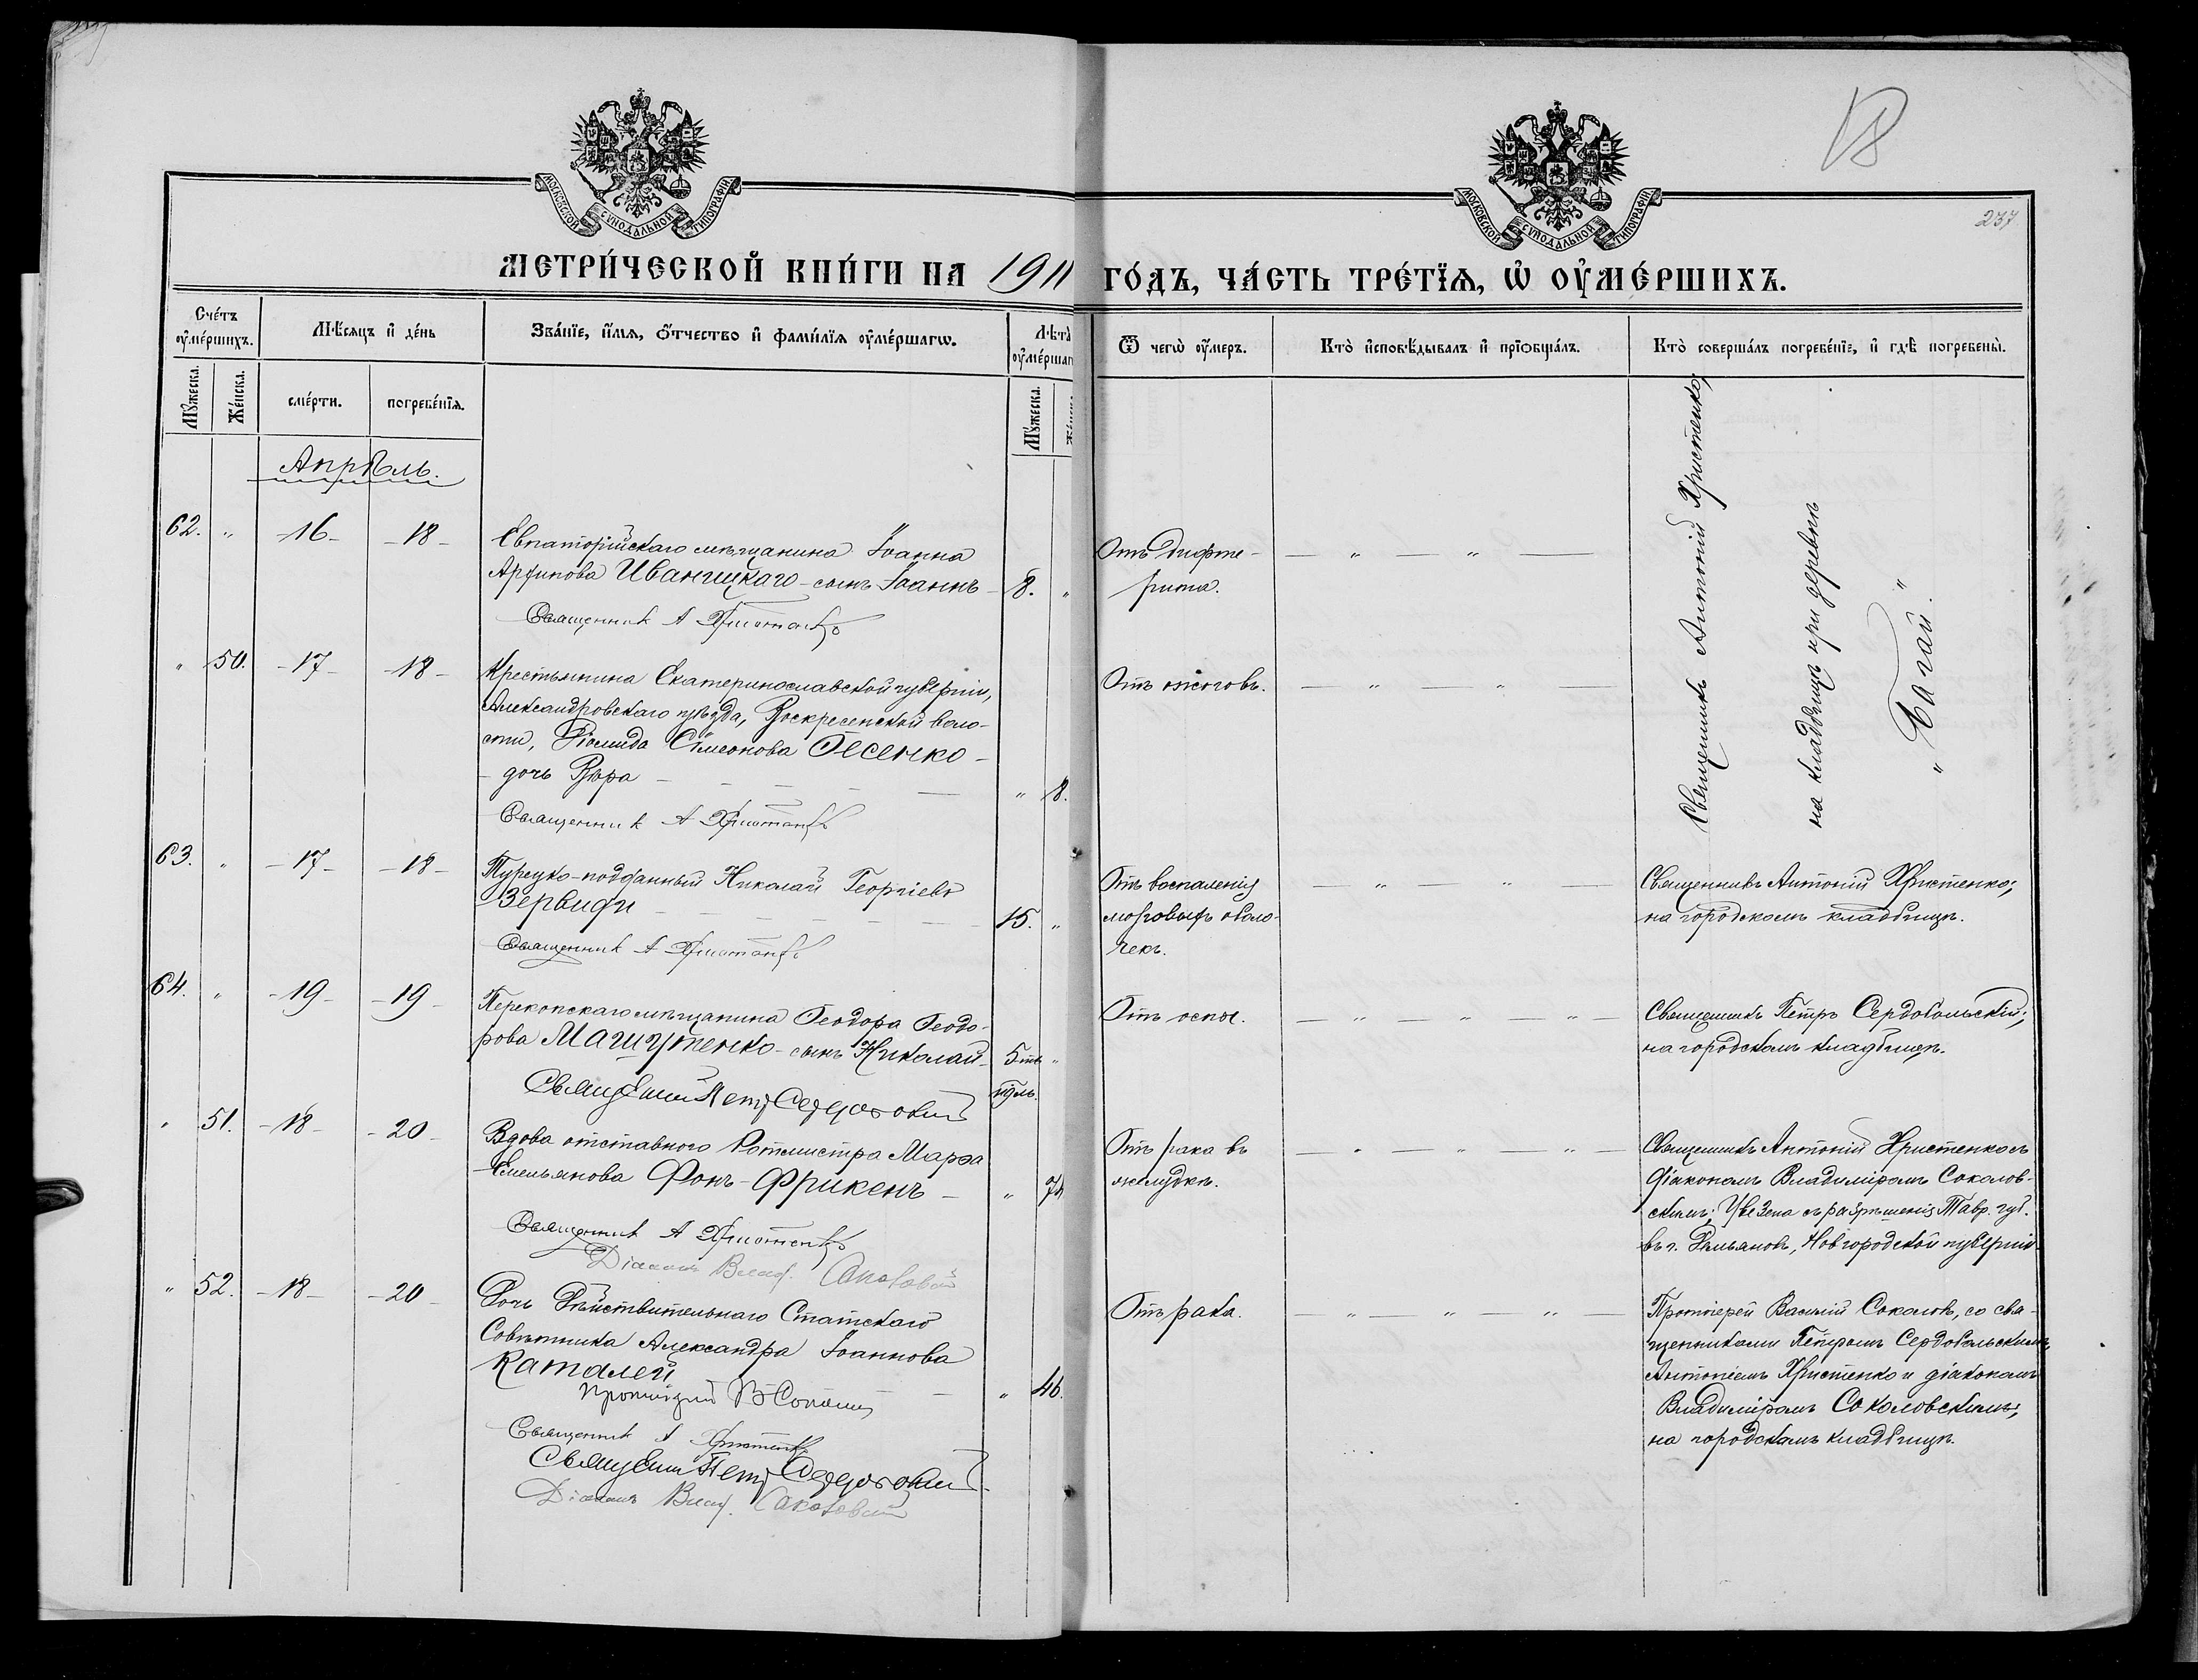 237
МОСКОВСКОЙ СѴНОДАЛЬНОЙ ТИПОГРАФІИ
МОСКОВСКОЙ СѴНОДАЛЬНОЙ ТИПОГРАФІИ
МЕТРИ́ЧЕСКОЙ КНИ́ГИ НА 1911 ГО́ДЪ, ЧА́СТЬ ТРЕ́ТЇѦ, Ѡ҆ ОУ҆МЕ́РШИХЪ.
Сче́тъ оу҆ме́ршихъ.
Мꙋ́жеска.
Же́нска.
Мѣ́сяцъ и҆ де́нь
сме́рти.
погребе́нїѧ.
Зва́нїе, и҆́мѧ, ѻ҆́тчество и҆ фами́лїѧ оу҆ме́ршагѡ.
Лѣ́та оу҆ме́ршаг
Мꙋ́жеска.
Ѿ чегѡ̀ оу҆́меръ.
Кто̀ и҆сповѣ́дывалъ и҆ прїѡбща́лъ.
Кто̀ соверша́лъ погребе́нїе, и҆ гдѣ̀ погребены̀.
Апрѣль.
62. " -16- -18- Евпаторійскаго мѣщанина Іоанна
Арѳипова Иваницкаго - сынъ Іоаннъ - 8. "
Священникъ А Христенко
Отъ дифте-
рита.
Священникъ Антоній Христенко,
на кладбищѣ при деревнѣ
" Багай. "
" 50. -17- -18- Крестьянина Екатеринославской губерніи,
Александровскаго уѣзда, Воскресенской воло-
сти, Діомида Сімеонова Ѳесенко -
- дочь Вѣра - " 8.
Священникъ А Христенко
Отъ ожоговъ.
63. " -17- -18- Турецко-подданный Николай Георгіевъ
Зервиди 15. "
Священникъ А Христенко
Отъ воспаленія
мозговыхъ оболо-
чекъ.
Священникъ Антоній Христенко;
на городскомъ кладбищѣ.
64. " -19- -19- Перекопскаго мѣщанина Ѳеодора Ѳеодо-
рова Машутенко - сынъ Николай - 5ть "
ндѣль.
Священникъ Петръ Сердобольскій
Отъ оспы.
Священникъ Петръ Сердобольскій;
на городскомъ кладбищѣ.
" 51. -18- -20- Вдова отставного Ротмистра Марѳа
Емельянова Фонъ-Фрикенъ - " 74.
Священникъ А Христенко
Діаконъ Влад. Соколовскій
Отъ рака въ
желудкѣ.
Священникъ Антоній Христенко съ
діакономъ Владиміромъ Соколов-
скимъ; Увезена съ разрѣшенія Тавр. губ.
въ г. Демьяновъ, Новгородской губерніи.
" 52. -18- -20- Дочь Дѣйствительнаго Статскаго
Совѣтника Александра Іоаннова
Каталей " 46.
Протоіерей В Соколовъ
Священникъ А Христенко
Священникъ Петръ Сердобольскій
Діаконъ Влад. Соколовскій
Отъ рака.
Протоіерей Василій Соколовъ, со свя-
щенниками Петромъ Сердобольскимъ,
Антоніемъ Христенко и діакономъ
Владиміромъ Соколовскимъ;
на городскомъ кладбищѣ.